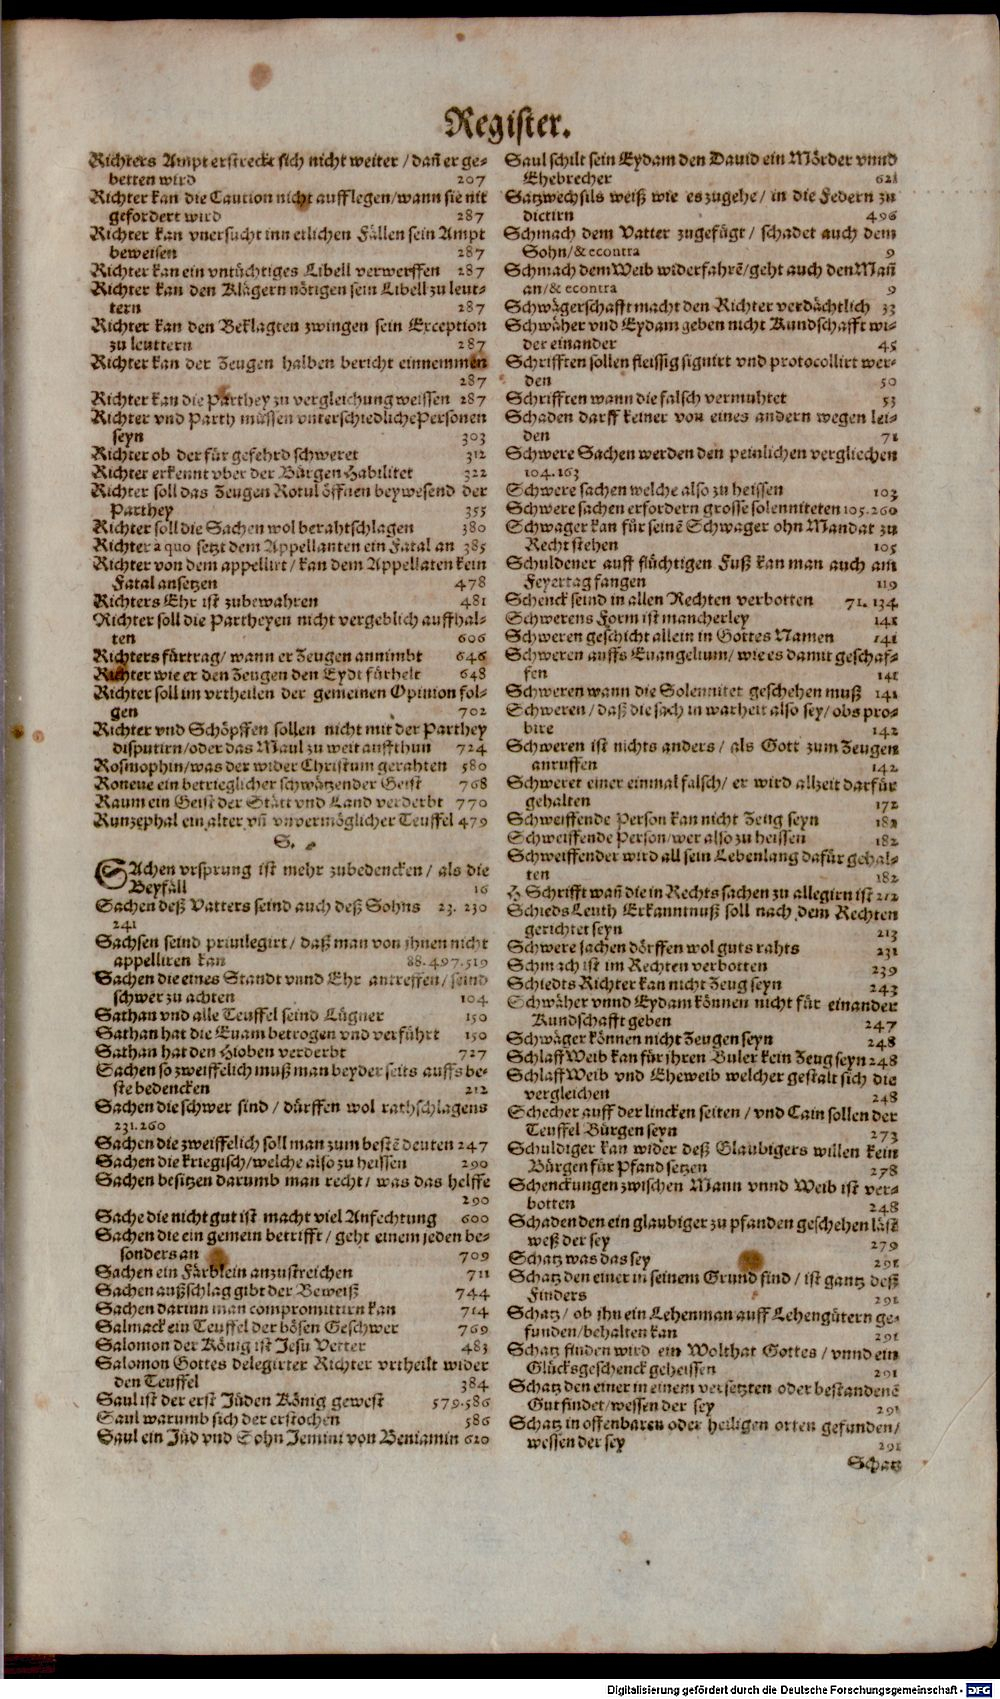 Register.
Richters Ampt erstreckt sich nicht weiter / dañ er ge-
betten wird 207
Richter kan die Caution nicht aufflegen/wann sie nit
gefordert wird 287
Richter kan vnersucht inn etlichen Fällen sein Ampt
beweisen 287
Richter kan ein vntüchtiges Libell verwerffen 287
Richter kan den Klägern nötigen sein Libell zu leut-
tern 287
Richter kan den Beklagten zwingen sein Exception
zu leuttern 287
Richter kan der Zeugen halben bericht einnemmen
287
Richter kan die Parthey zu vergleichung weissen 287
Richter vnd Parth müssen vnterschiedliche Personen
seyn 303
Richter ob der für gefehrd schweret 312
Richter erkennt vber der Bürgen Habilitet 322
Richter soll das Zeugen Rotul öffnen beywesend der
Parthey 355
Richter soll die Sachen wol berahtschlagen 380
Richter à quo setzt dem Appellanten ein Fatal an 385
Richter von dem appellirt / kan dem Appellaten kein
Fatal ansetzen 478
Richters Ehr ist zubewahren 481
Richter soll die Partheyen nicht vergeblich auffhal-
ten 606
Richters fürtrag/ wann er Zeugen annimbt 646
Richter wie er den Zeugen den Eydt fürhelt 648
Richter soll im vrtheilen der gemeinen Opinion fol-
gen 702
Richter vnd Schöpffen sollen nicht mit der Parthey
disputirn/oder das Maul zu weit auffthun 724
Rosmophin/was der wider Christum gerahten 580
Roneue ein betrieglicher schwätzender Geist 768
Raum ein Geist der Stätt vnd Land verderbt 770
Runzephal ein alter vñ vnvermöglicher Teuffel 479
S.
SAchen vrsprung ist mehr zubedencken / als die
Beyfäll 16
Sachen deß Vatters seind auch deß Sohns 23. 230
241
Sachsen seind priuilegirt / daß man von jhnen nicht
appelliren kan 88.497.519
Sachen die eines Standt vnnd Ehr antreffen / seind
schwer zu achten 104
Sathan vnd alle Teuffel seind Lügner 150
Sathan hat die Euam betrogen vnd verführt 150
Sathan hat den Hioben verderbt 727
Sachen so zweiffelich muß man beyder seits auffs be-
ste bedencken 212
Sachen die schwer sind / dürffen wol rathschlagens
231.260
Sachen die zweiffelich soll man zum bestē deuten 247
Sachen die kriegisch/welche also zu heissen 290
Sachen besitzen darumb man recht / was das helffe
290
Sache die nicht gut ist macht viel Anfechtung 600
Sachen die ein gemein betrifft / geht einem jeden be-
sonders an 709
Sachen ein Färblein anzustreichen 711
Sachen außschlag gibt der Beweiß 744
Sachen darinn man compromittirn kan 714
Salmack ein Teuffel der bösen Geschwer 769
Salomon der König ist Jesu Vetter 483
Salomon Gottes delegirter Richter vrtheilt wider
den Teuffel 384
Saul ist der erst Jüden König gewest 579.586
Saul warumb sich der erstochen 586
Saul ein Jüd vnd Sohn Jemini von Beniamin 620
Saul schilt sein Eydam den Dauid ein Mörder vnnd
Ehebrecher 621
Satzwechsils weiß wie es zugehe / in die Federn zu
dictirn 496
Schmach dem Vatter zugefügt / schadet auch dem
Sohn/& econtra 9
Schmach dem Weib widerfahrē/geht auch den Mañ
an/& econtra 9
Schwägerschafft macht den Richter verdächtlich 33
Schwäher vnd Eydam geben nicht Kundschafft wi-
der einander 45
Schrifften sollen fleissig signirt vnd protocollirt wer-
den 50
Schrifften wann die falsch vermuhtet 53
Schaden darff keiner von eines andern wegen lei-
den 71
Schwere Sachen werden den peinlichen vergliechen
104.163
Schwere sachen welche also zu heissen 103
Schwere sachen erfordern grosse solenniteten 105.260
Schwager kan für seinē Schwager ohn Mandat zu
Recht stehen 105
Schuldener auff flüchtigen Fuß kan man auch am
Feyertag fangen 119
Schenck seind in allen Rechten verbotten 71. 134
Schwerens Form ist mancherley 141
Schweren geschicht allein in Gottes Namen 141
Schweren auffs Euangelium/ wie es damit geschaf-
fen 141
Schweren wann die Solennitet geschehen muß 141
Schweren / daß die sach in warheit also sey / obs pro-
bire 142
Schweren ist nichts anders / als Gott zum Zeugen
anruffen 142
Schweret einer einmal falsch/ er wird allzeit darfür
gehalten 172
Schweiffende Person kan nicht Zeug seyn 182
Schweiffende Person/wer also zu heissen 182
Schweiffender wird all sein Lebenlang dafür gehal-
ten 182
H Schrifft wañ die in Rechtssachen zu allegirn ist 212
Schieds Leuth Erkanntnuß soll nach dem Rechten
gerichtet seyn 213
Schwere sachen dörffen wol guts rahts 231
Schmach ist im Rechten verbotten 239
Schiedts Richter kan nicht Zeug seyn 243
Schwäher vnnd Eydam können nicht für einander
Kundschafft geben 247
Schwäger können nicht Zeugen seyn 248
Schlaff Weib kan für jhren Buler kein Zeug seyn 248
Schlaff Weib vnd Eheweib welcher gestalt sich die
vergleichen 248
Schecher auff der lincken seiten / vnd Cain sollen der
Teuffel Bürgen seyn 273
Schuldiger kan wider deß Glaubigers willen kein
Bürgen für Pfand setzen 278
Schenckungen zwischen Mann vnnd Weib ist ver-
botten 248
Schaden den ein glaubiger zu pfanden geschehen läst
weß der sey 279
Schatz was das sey 291
Schatz den einer in seinem Grund find / ist gantz deß
Finders 291
Schatz / ob jhn ein Lehenman auff Lehengütern ge-
funden/behalten kan 291
Schatz finden wird ein Wolthat Gottes / vnnd ein
Glücksgeschenck geheissen 291
Schatz den einer in einem versetzten oder bestandenē
Gut findet/wessen der sey 291
Schatz in offenbaren oder heiligen orten gefunden/
wessen der sey 291
Schatz
Digitalisierung gefördert durch die Deutsche Forschungsgemeinschaft - DFG